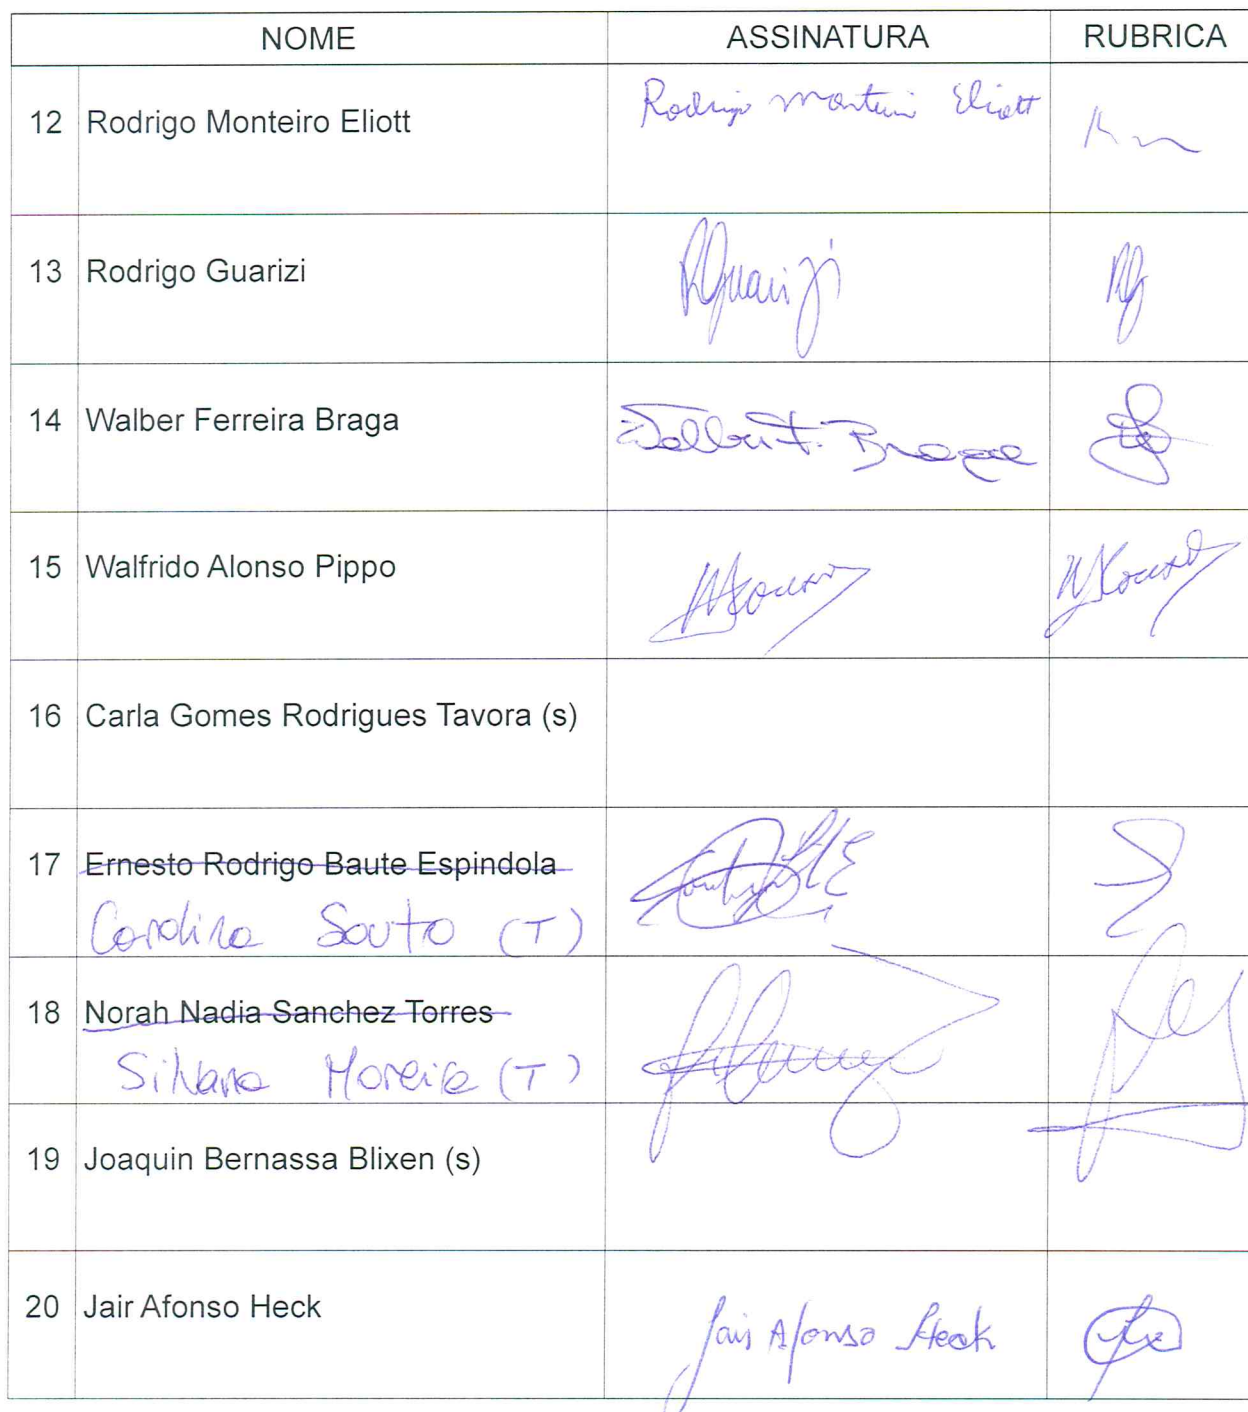 NOME ASSINATURA RUBRICA
12 Rodrigo Monteiro Eliott Rodrigo Monteiro Eliott
13 Rodrigo Guarizi RGuarizi RG
14 Walber Ferreira Braga Walber F. Braga
15 Walfrido Alonso Pippo
16 Carla Gomes Rodrigues Tavora (s)
17 Ernesto Rodrigo Baute Espindola
Carolina Souto (T)
18 Norah Nadia Sanchez Torres
Silvana Moreira (T)
19 Joaquin Bernassa Blixen (s)
20 Jair Afonso Heck Jair Afonso Heck